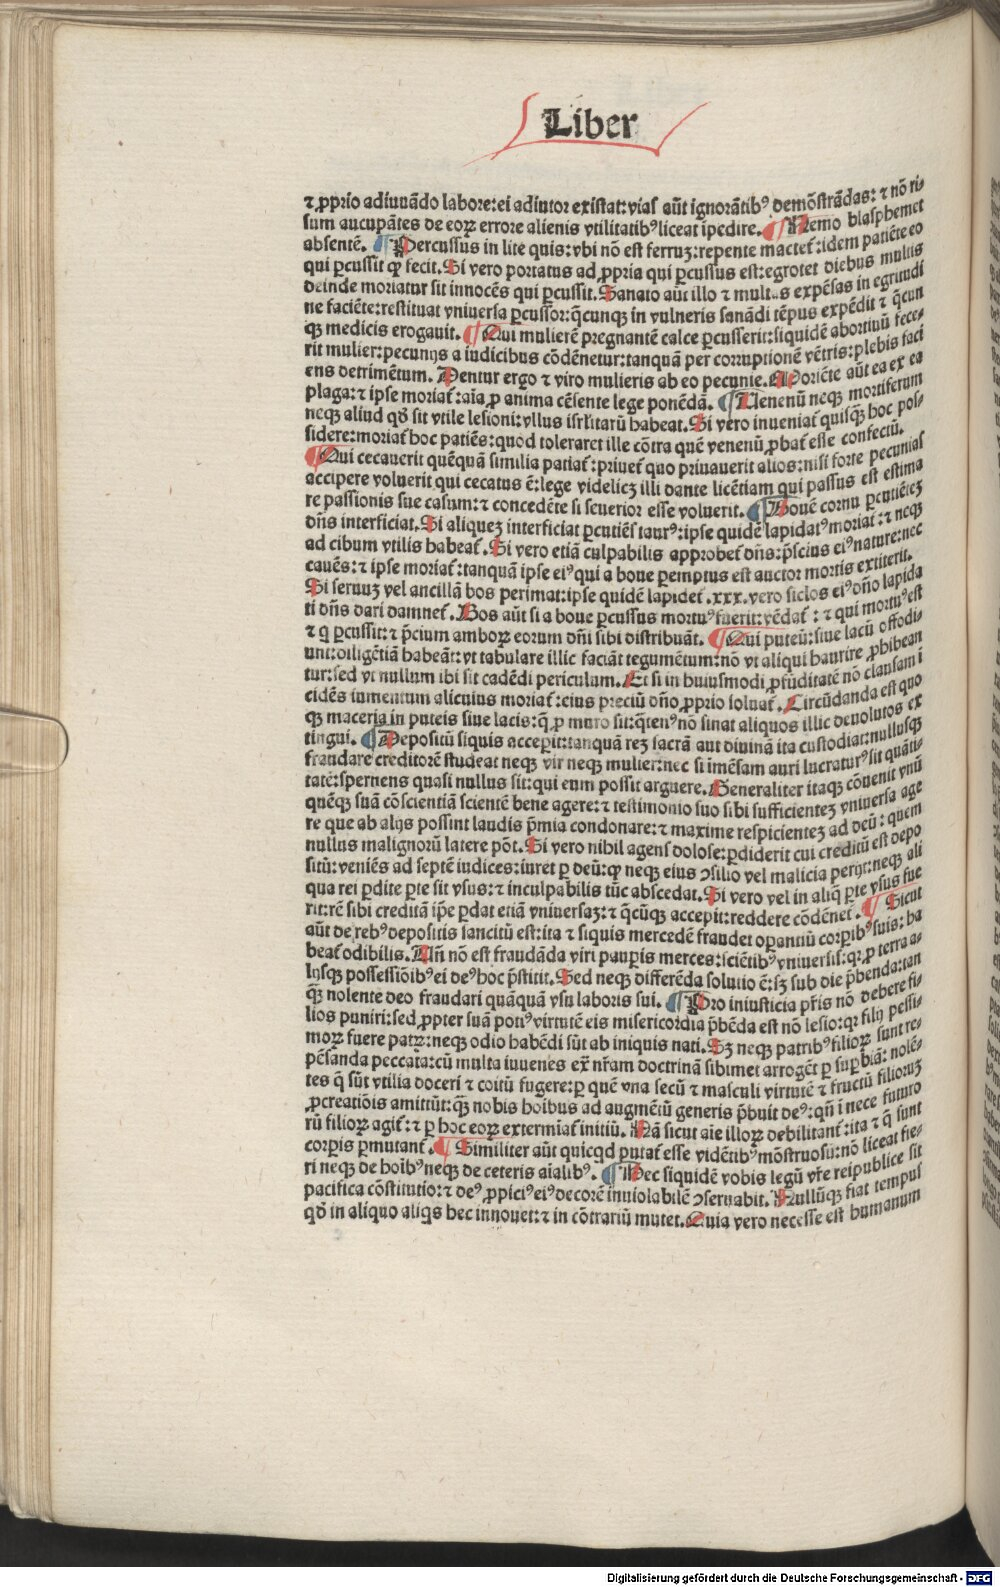 Liber
⁊ ꝓprio adiuuādo labore: ei adiutor existat: vias aūt ignorātibꝰ demōstrādas: ⁊ nō ri-
sum aucupātes de eoꝝ errore alienis vtilitatibꝰ liceat īpedire. ¶ Nemo blasphemet
absentē. ¶ Percussus in lite quis: vbi nō est ferruꝫ: repente mactet᷑: idem patiēte eo
qui ꝑcussit ꝙ fecit. Si vero portatus ad ꝓpria qui ꝑcussus est: egrotet diebus multis
deinde moriatur sit innocēs qui ꝑcussit. Sanato aūt illo ⁊ multas expēsas in egritudi
ne faciēte: restituat vniuersa ꝑcussor: q̄cunqꝫ in vulneris sanādi tēpus expēdit ⁊ q̄cun
qꝫ medicis erogauit. ¶ Qui mulierē pregnantē calce ꝑcusserit: siquidē abortiuū fece-
rit mulier: pecunijs a iudicibus cōdēnetur: tanquā per corruptionē vētris: plebis faci
ens detrimētum. Dentur ergo ⁊ viro mulieris ab eo pecunie. Moriēte aūt ea ex ea
plaga: ⁊ ipse moriat᷑: aīa ꝓ anima cēsente lege ponēdā. ¶ Uenenū neqꝫ mortiferum
neqꝫ aliud qd̄ sit vtile lesioni: vllus isrl̄itarū habeat. Si vero inueniat᷑ quisqꝫ hoc pos-
sidere: moriat᷑ hoc patiēs: quod toleraret ille cōtra quē venenū ꝓbat᷑ esse confectū.
¶ Qui cecauerit quēquā similia patiat᷑: priuet᷑ quo priuauerit alios: nisi forte pecunias
accipere voluerit qui cecatus ē: lege videlicꝫ illi dante licētiam qui passus est estima
re passionis sue casum: ⁊ concedēte si seuerior esse voluerit. ¶ Bouē cornu ꝑcutiētēꝫ
dn̄s interficiat. Si aliqueꝫ interficiat ꝑcutiēs taurꝰ: ipse quidē lapidatꝰ moriat᷑: ⁊ neqꝫ
ad cibum vtilis habeat᷑. Si vero etiā culpabilis approbet᷑ dn̄s: p̄scius eiꝰ nature: nec
cauēs: ⁊ ipse moriat᷑: tanquā ipse eiꝰ qui a boue ꝑemptus est auctor mortis extiterit.
Si seruuꝫ vel ancillā bos perimat: ipse quidē lapidet᷑. xxx. vero siclos eiꝰ dn̄o lapida
ti dn̄s dari damnet᷑. Bos aūt si a boue ꝑcussus mortuꝰ fuerit: vēdat᷑: ⁊ qui mortuꝰ est
⁊ q̄ ꝑcussit: ⁊ p̄cium amboꝝ eorum dn̄i sibi distribuāt. ¶ Qui puteū: siue lacū effodi-
unt: diligētiā habeāt: vt tabulare illic faciāt tegumētum: nō vt aliqui haurire ꝓhibean
tur: sed vt nullum ibi sit cadēdi periculum. Et si in huiusmodi ꝓfūditatē nō clausam ī
cidēs iumentum alicuius moriat᷑: eius preciū dn̄o ꝓprio soluat᷑. Circūdanda est quo
qꝫ maceria in puteis siue lacis: q̄ ꝓ muro sit: q̄tenꝰ nō sinat aliquos illic deuolutos ex
tingui. ¶ Depositū siquis acceꝑit: tanquā reꝫ sacrā aut diuinā ita custodiat: nullusqꝫ
fraudare creditorē studeat neqꝫ vir neqꝫ mulier: nec si īmēsam auri lucraturꝰ sit quāti-
tatē: spernens quasi nullus sit: qui eum possit arguere. Generaliter itaqꝫ cōuenit vnū
quēqꝫ suā cōscientiā scientē bene agere: ⁊ testimonio suo sibi sufficienteꝫ vniuersa age
re que ab alijs possint laudis p̄mia condonare: ⁊ maxime respicienteꝫ ad deū: quem
nullus malignorū latere pōt. Si vero nihil agens dolose: ꝑdiderit cui creditū est depo
sitū: veniēs ad septē iudices: iuret ꝑ deū: ꝙ neqꝫ eius ↄsilio vel malicia perijt: neqꝫ ali
qua rei ꝑdite ꝑte sit vsus: ⁊ inculpabilis tūc abscedat. Si vero vel in aliq̄ ꝑte vsus fue
rit: rē sibi creditā ip̄e ꝑdat etiā vniuersaꝫ: ⁊ q̄cūqꝫ accepit: reddere cōdēnet᷑. ¶ Sicut
aūt de rebꝰ depositis sancitū est: ita ⁊ siquis mercedē fraudet operantiū corꝑibꝰ suis: ha
beat᷑ odibilis. Un̄ nō est fraudāda viri pauꝑis merces: sciētibꝰ vniuersis: qꝛ ꝓ terra a-
lijsqꝫ possessiōibꝰ ei deꝰ hoc p̄stitit. Sed neqꝫ differēda solutio ē: sꝫ sub die p̄benda: tan
q̄ꝫ nolente deo fraudari quāquā vsu laboris sui. ¶ Pro iniusticia pr̄is nō debere fi-
lios puniri: sed ꝓpter suā potiꝰ virtutē eis misericordia p̄bēda est nō lesio: qꝛ filij pessi-
moꝝ fuere patꝝ: neqꝫ odio habēdi sūt ab iniquis nati. Sꝫ neqꝫ patribꝰ filioꝝ sunt re-
pēsanda peccata: cū multa iuuenes ex nr̄am doctrinā sibimet arrogēt ꝑ suꝑbiā: nolē-
tes q̄ sūt vtilia doceri ⁊ coitū fugere: ꝑ quē vna secū ⁊ masculi virtutē ⁊ fructū filioruꝫ
ꝓcreatiōis amittūt: q̄ꝫ nobis hoibus ad augmētū generis p̄buit deꝰ: qn̄ i nece futuro
rū filioꝝ agit᷑: ⁊ ꝑ hoc eoꝝ extermiat᷑ initiū. Nā sicut aīe illoꝝ debilitant᷑: ita ⁊ q̄ sunt
corꝑis ꝑmutant᷑. ¶ Similiter aūt quicqd putat᷑ esse vidētibꝰ mōstruosū: nō liceat fie-
ri neqꝫ de hoībꝰ neqꝫ de ceteris aīalibꝰ. ¶ Hec siquidē vobis legū vr̄e reipublice sit
pacifica cōstitutio: ⁊ deꝰ ꝓpiciꝰ eiꝰ decorē inuiolabilē ↄseruabit. Nullūqꝫ fiat tempus
qd̄ in aliquo aliq̄s hec innouet: ⁊ in cōtrariū mutet. Quia vero necesse est humanum
Digitalisierung gefördert durch die Deutsche Forschungsgemeinschaft - DFG